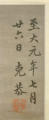 至大元年七月
廿六日 克恭